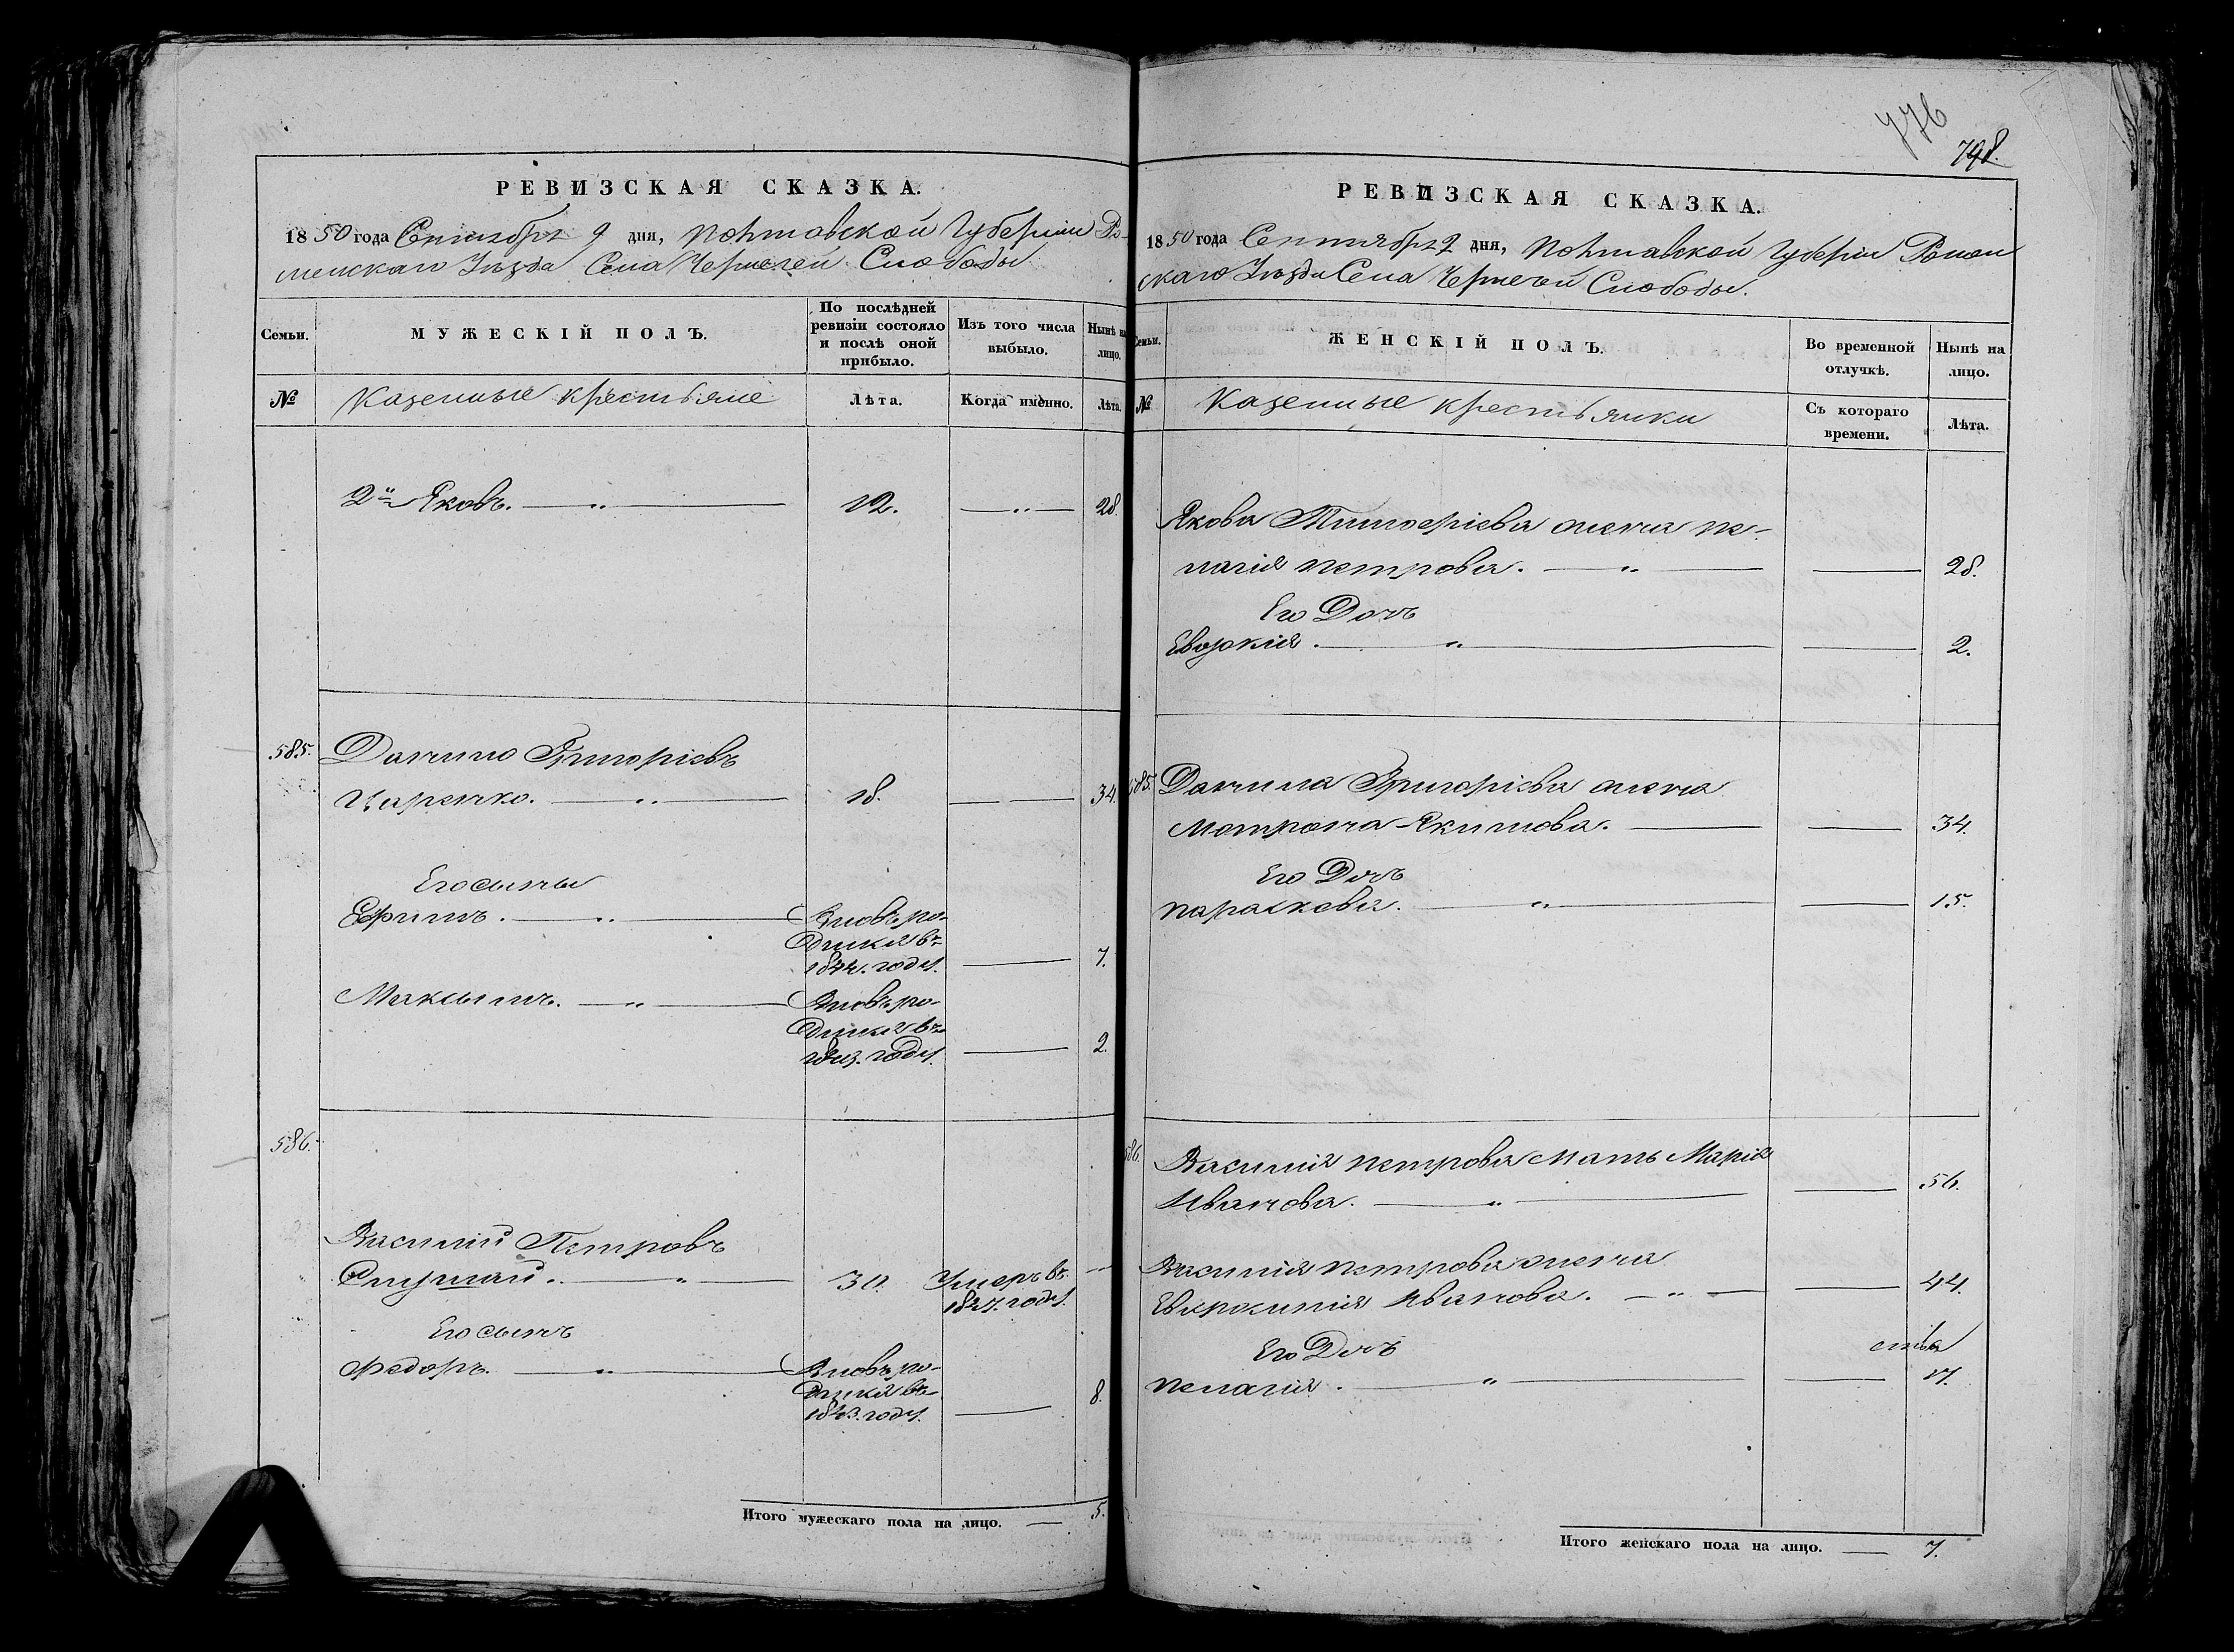 РЕВИЗСКАЯ СКАЗКА.
1850 года Сентября 9 дня, Полтавской Губерніи Ро-
менскаго Уѣзда Села Чернечей Слободы
Семьи.
МУЖЕСКІЙ ПОЛЪ.
По послѣдней ревизіи состояло и послѣ оной прибыло.
Изъ того числа выбыло.
Нынѣ на лицо.
№
Казенные крестьяне
Лѣта.
Когда именно.
Лѣта.
2й Яковъ. 12. 28.
585. Данило Григоріевъ
Царенко. 18. 34.
Его сыны
Ефимъ. Вновь ро-
дился въ
184 . году. 7.
Максымъ. Вновь ро-
дился въ
году. 2.
586.
Василий Петровъ
30. Умеръ въ
184 . году.
Его сынъ
Федоръ. Вновь ро-
дился въ
1843. году. 8.
Итого мужескаго пола на лицо. 5.
776
798.
РЕВИЗСКАЯ СКАЗКА.
1850 года Сентября 9 дня, Полтавской Губеріи Ромен
скаго Уѣзда Села Чернечей Слободы.
Семьи.
ЖЕНСКІЙ ПОЛЪ.
Во временной отлучкѣ.
Нынѣ на лицо.
№
Казенные крестьянки
Съ котораго времени.
Лѣта.
Якова жена Пе-
лагія Петрова. 28.
Его Дочь
Евдокія. 2.
585. Данила Григоріева жена
Мотрона Якимова. 34.
Его Дочь
Параскева. 15.
586. Василія Петрова Мать Марія
Иванова. 56.
Василія Петрова жена
Евфросинія Иванова. 44.
Его Дочь
Пелагія.
Итого женскаго пола на лицо. 7.